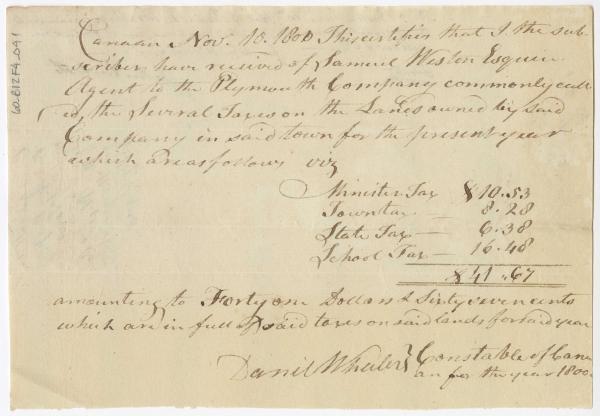 Canaan Nov. 10. 1800 This certifies that I the sub-
scriber have received of Samuel Weston Esquire
Agent to the Plymouth Company commonly call
d, the Several Taxes on the Lands owned by said
Company in said town for the present year
which are as follows viz
Minister Tax $10.53
Town tax — 8.28
State Tax — 6.38
School Tax — 16.48
$41.67
amounting to Forty one Dollars & Sixty seven cents
which are in full of said taxes on said lands for said year
Daniel Wheeler } Constable of Cana
an for the year 1800.
60.B12F4.041